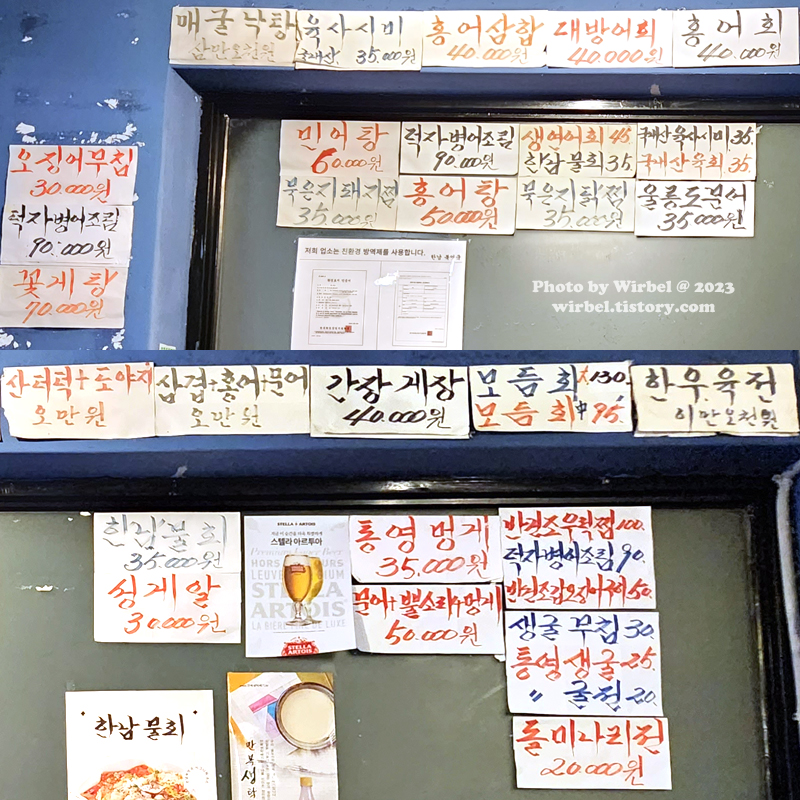 매굴낙탕
삼만오천원
육사시미
국내산. 35.000원
홍어삼합
40.000원
대방어회
40.000원
홍어회
40.000원
오징어무침
30.000원
덕자병어조림
90.000원
꽃게탕
70.000원
민어탕
60.000원
덕자병어조림
90.000원
생연어회 45.
한남물회 35.
국내산육사시미 35.
국내산육회. 35.
묵은지돼지찜
35.000원
홍어탕
50.000원
묵은지닭찜
35.000원
울릉도문어
35.000원
저희 업소는 친환경 방역제를 사용합니다.
Photo by Wirbel @ 2023
wirbel.tistory.com
산더덕+도야지
오만원
삼겹+홍어+문어
오만원
간장게장
40.000원
모듬회大130.
모듬회中95.
한우육전
이만오천원
한남물회
35.000원
성게알
30.000원
STELLA ARTOIS
스텔라 아르투아
Premium Lager Beer
STELLA
ARTOIS
LA BIÈRE DE LUXE
STELLA
ARTOIS
통영멍게
35.000원
문어+뿔소라+멍게
50.000원
반건조우럭찜 100.
덕자병어조림 90.
반건조갑오징어구이 50.
생굴무침 30.
통영생굴 25.
〃 굴전 20.
돌미나리전
20.000원
한남물회
만복
생
탁